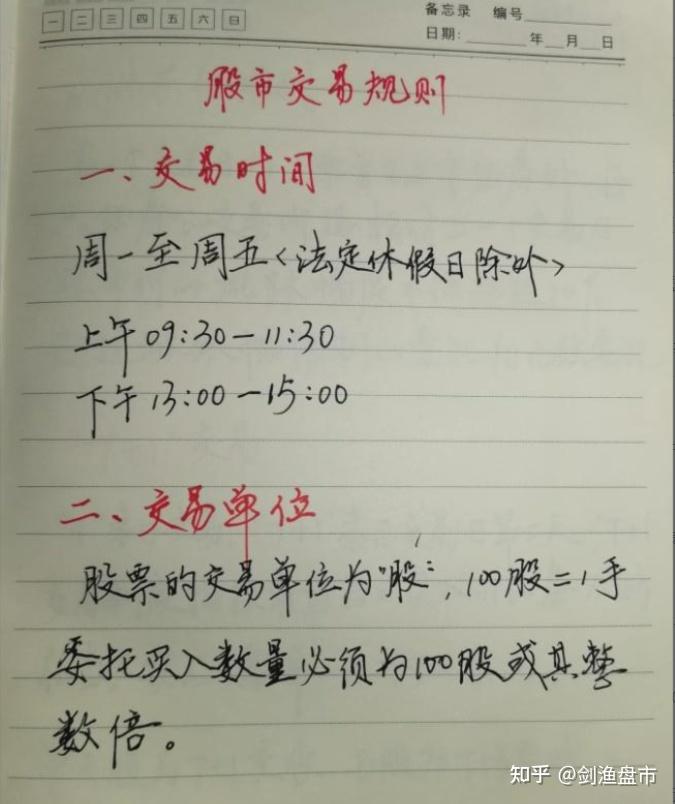 一 二 三 四 五 六 日
备忘录 编号
日期: 年 月 日
股市交易规则
一、交易时间
周一至周五<法定休假日除外>
上午09:30-11:30
下午13:00-15:00
二、交易单位
股票的交易单位为"股",100股=1手
委托买入数量必须为100股或其整
数倍。
知乎 @剑渔盘市